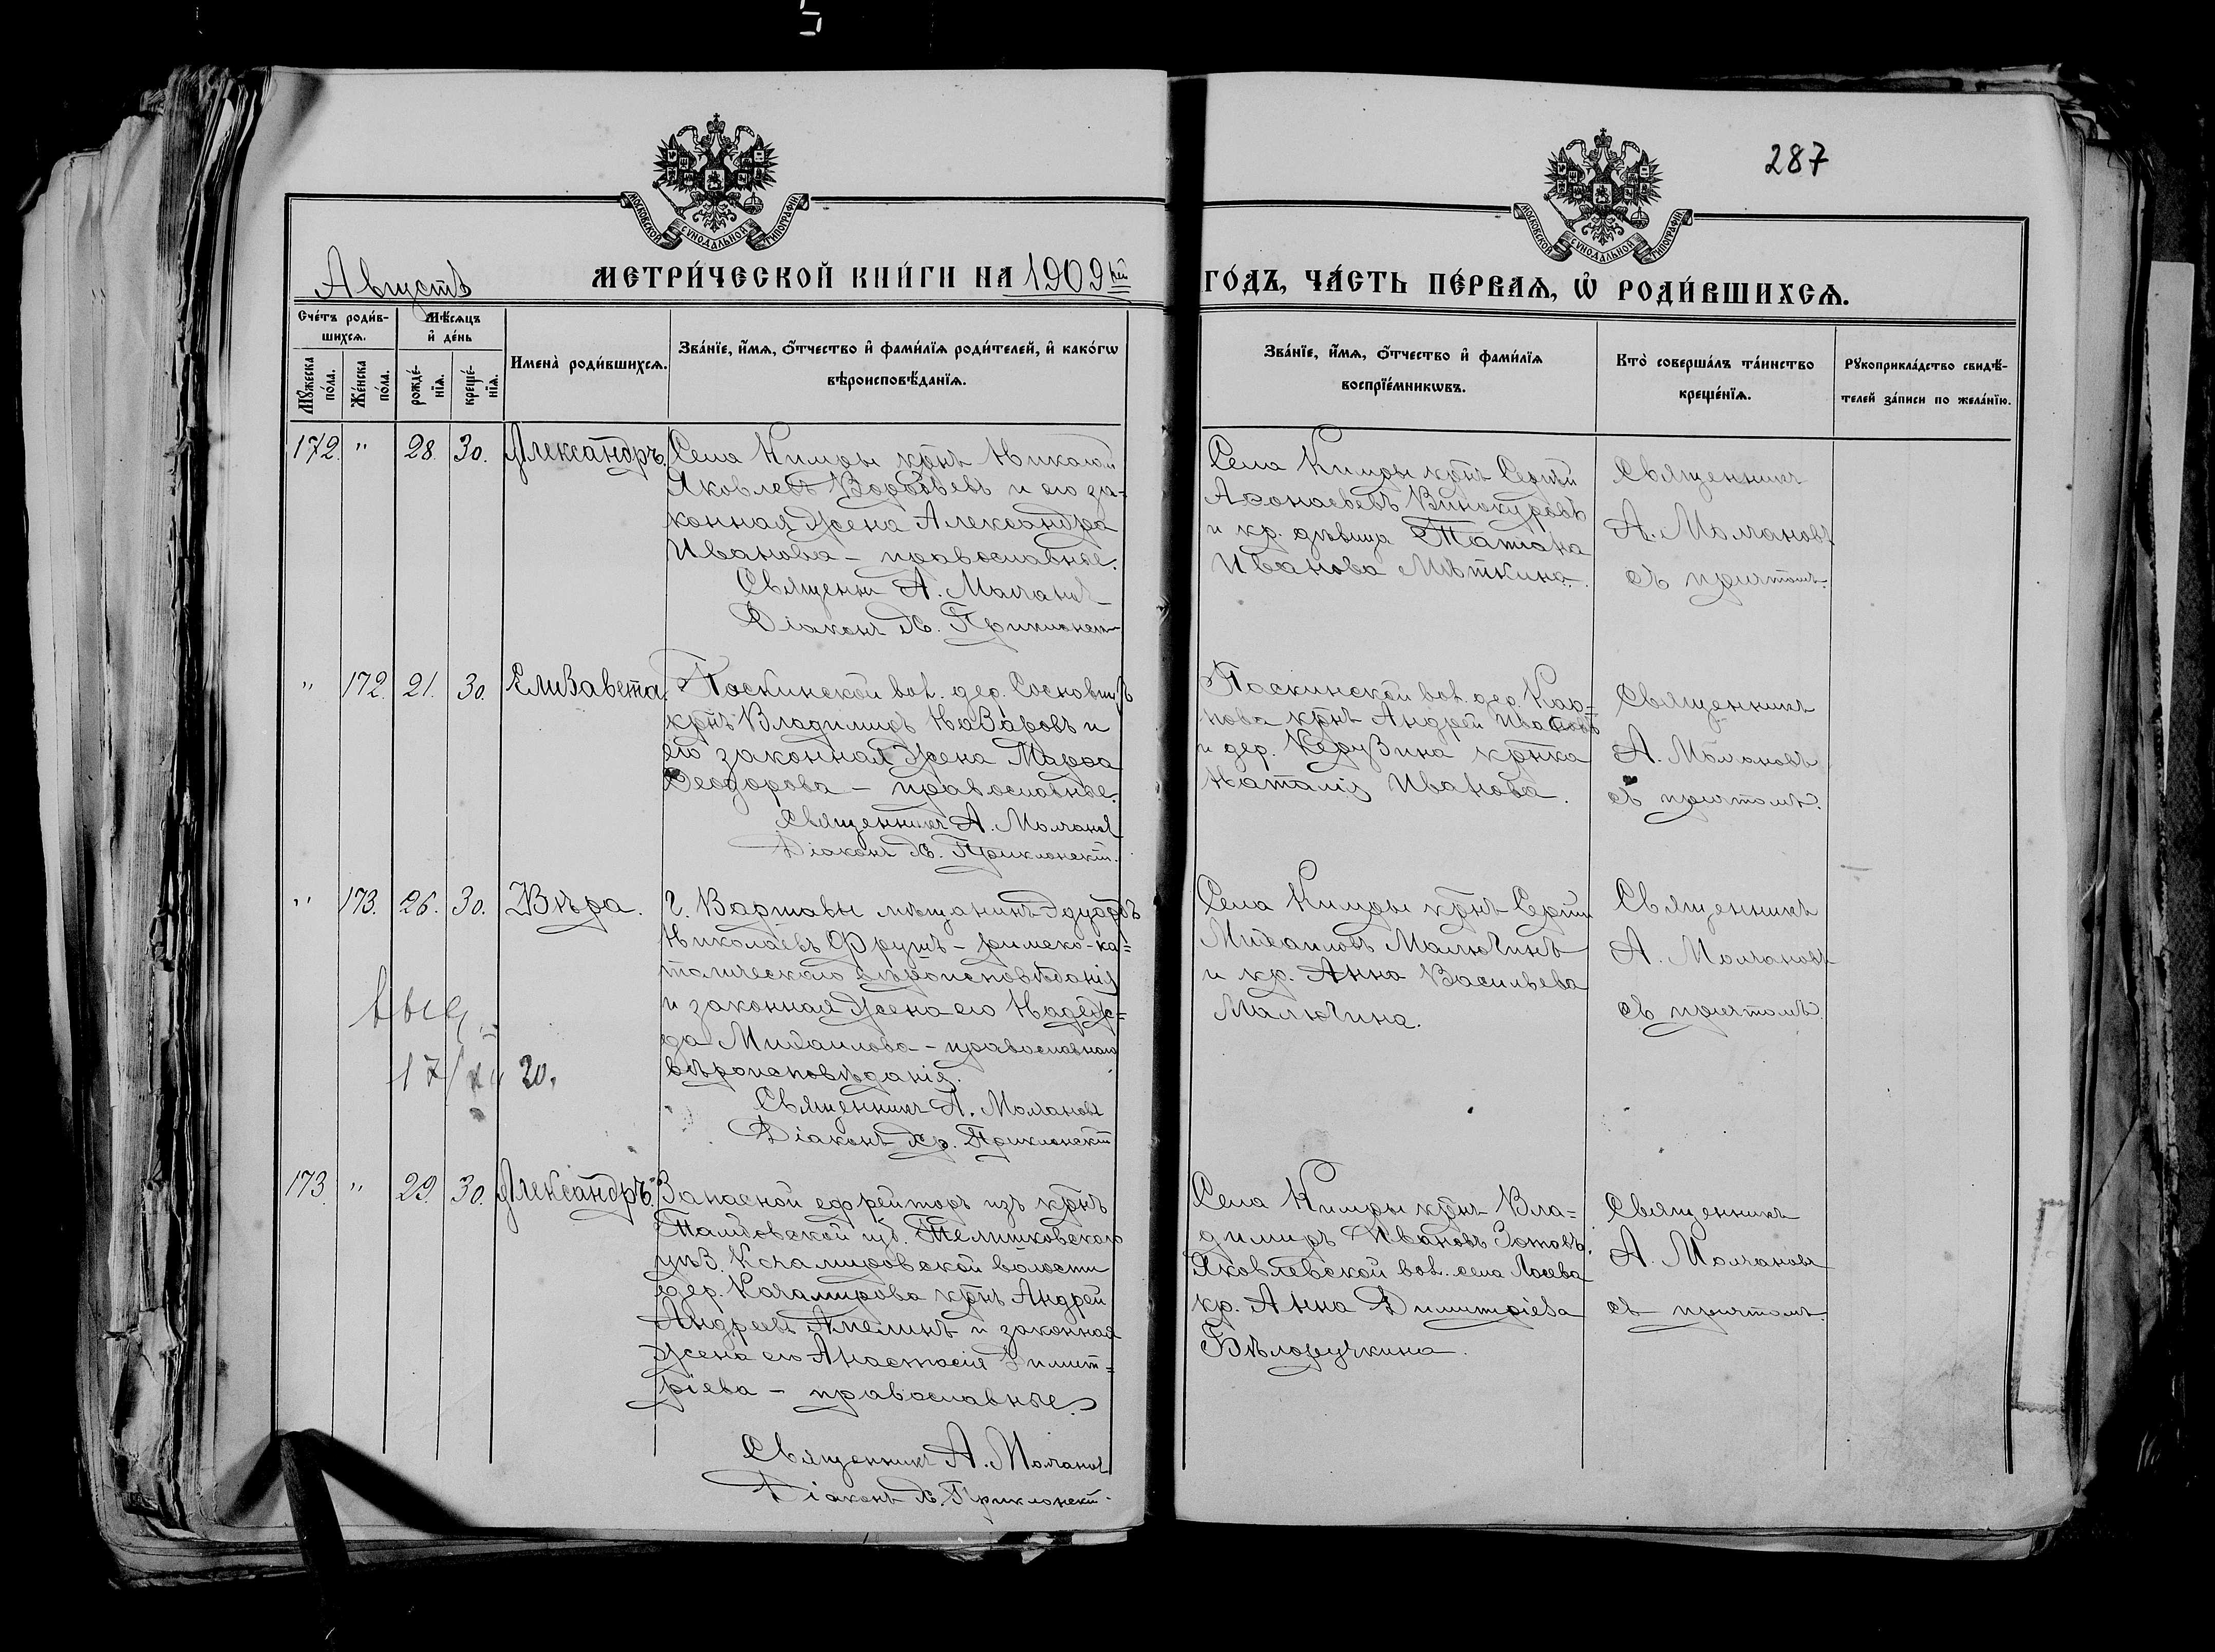 287
МОСКОВСКОЙ СѴНОДАЛЬНОЙ ТИПОГРАФІИ
МОСКОВСКОЙ СѴНОДАЛЬНОЙ ТИПОГРАФІИ
Августъ
МЕТРИ́ЧЕСКОЙ КНИ́ГИ НА 1909й
ГО́ДЪ, ЧА́СТЬ ПЕ́РВАѦ, Ѡ҆ РОДИ́ВШИХСѦ.
Сче́тъ роди́в-
шихсѧ.
Мѣ́сѧцъ
и҆ де́нь
Мꙋ́жеска
по́ла.
Же́нска
по́ла.
рожде́-
нїѧ.
креще́-
нїѧ.
Имена̀ роди́вшихсѧ.
Зва́нїе, и҆́мѧ, ѻ҆́тчество и҆ фами́лїѧ роди́телей, и҆ како́гѡ
вѣроисповѣ́данїѧ.
Зва́нїе, и҆́мѧ, ѻ҆́тчество и҆ фами́лїѧ
воспрїе́мникѡвъ.
Кто̀ соверша́лъ та́инство
креще́нїѧ.
Рꙋкоприкла́дство свидѣ́-
телей за́писи по жела́нїю.
172. " 28. 30. Александръ.
Села Кимры крнъ Николай
Яковлевъ Воробьевъ и его за-
конная жена Александра
Иванова – православные.
Священн А. Молчановъ
Діаконъ Приклонск
Села Кимры крнъ Сергѣй
Аѳонасьевъ Винокуровъ
и кр. дѣвица Татіана
Иванова Мѣткина.
Священникъ
А. Молчановъ
съ причтомъ.
" 172. 21. 30. Елизавета.
вол. дер.
крнъ Владимиръ Назаровъ и
его законная жена Марѳа
Ѳеодорова – православные.
Священникъ А. Молчановъ
Діаконъ Приклонскій.
вол. дер. Кар-
пова крнъ Андрей Ивановъ
и дер. Керузина крнка
Наталія Иванова.
Священникъ
А. Молчановъ
съ причтомъ.
" 173. 26. 30. Вѣра.
г. Варшавы мѣщанинъ Эдуардъ
Николаевъ – римско-ка-
толическаго вѣроисповѣданія
и законная жена его Надеж-
да Михаилова – православнаго
вѣроисповѣданія.
Священникъ А. Молчановъ
Діаконъ Приклонскій
17/ 20.
Села Кимры крнъ Сергѣй
Михаиловъ Малюгинъ
и кр. Анна Васильева
Малюгина.
Священникъ
А. Молчановъ
съ причтомъ.
173 " 29. 30. Александръ.
Запасной ефрейторъ изъ крнъ
Тамбовской губ.
уѣз. волости
дер. крнъ Андрей
Андреевъ Амелинъ и законная
жена его Анастасія Димит-
ріева – православные.
Священникъ А. Молчановъ
Діаконъ Приклонскій.
Села Кимры крнъ Вла-
димиръ Ивановъ Зотовъ.
Яковлевской вол. села Лосева
кр. Анна Димитріева
Бѣлоручкина.
Священникъ
А. Молчановъ
съ причтомъ.